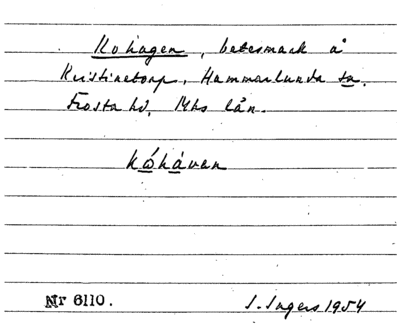 Kohagen, betesmark å
Kristinetorp, Hammarlunda sn.
Frosta hd, Mhs län.
kóhávan
Nr 6110.
I. Ingers 1954